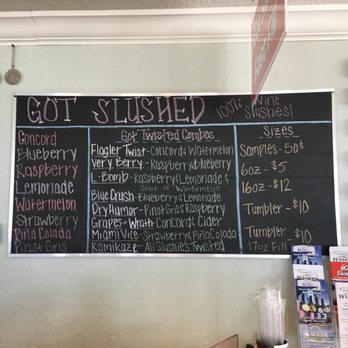 GOT SLUSHED 100% wine slushies!
Concord
Blueberry
Raspberry
Lemonade
Watermelon
Strawberry
Piña Colada
Pinot Gris
Got Twisted Combos
Flagler Twist - Concord & Watermelon
Very Berry - Raspberry & Blueberry
L-Bomb - Raspberry & Lemonade &
Shot of Watermelon
Blue Crush - Blueberry & Lemonade
Dry Humor - Pinot Gris & Raspberry
Grapes of Wrath - Concord & Cider
Miami Vice - Strawberry & Piña Colada
Kamikaze - All Slushies Twisted
Sizes
Samples - 50¢
6oz - $5
16oz - $12
Tumbler - $10
Tumbler - $10
17oz Fill